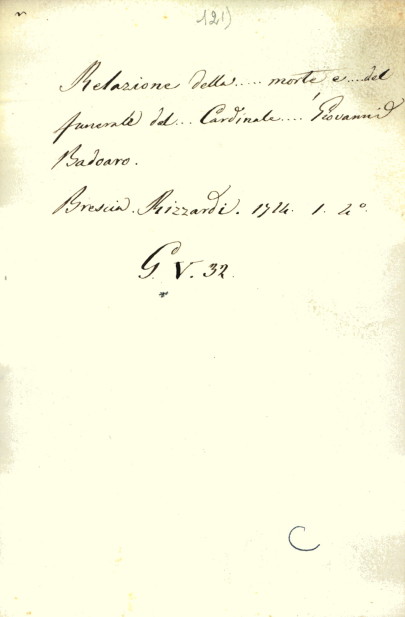 121)
Relazione della ..... morte e .... del
funerale del ... Cardinale .... Giovanni
Badoaro.
Brescia. Rizzardi. 1714. 1. 4º.
G. V. 32.
C